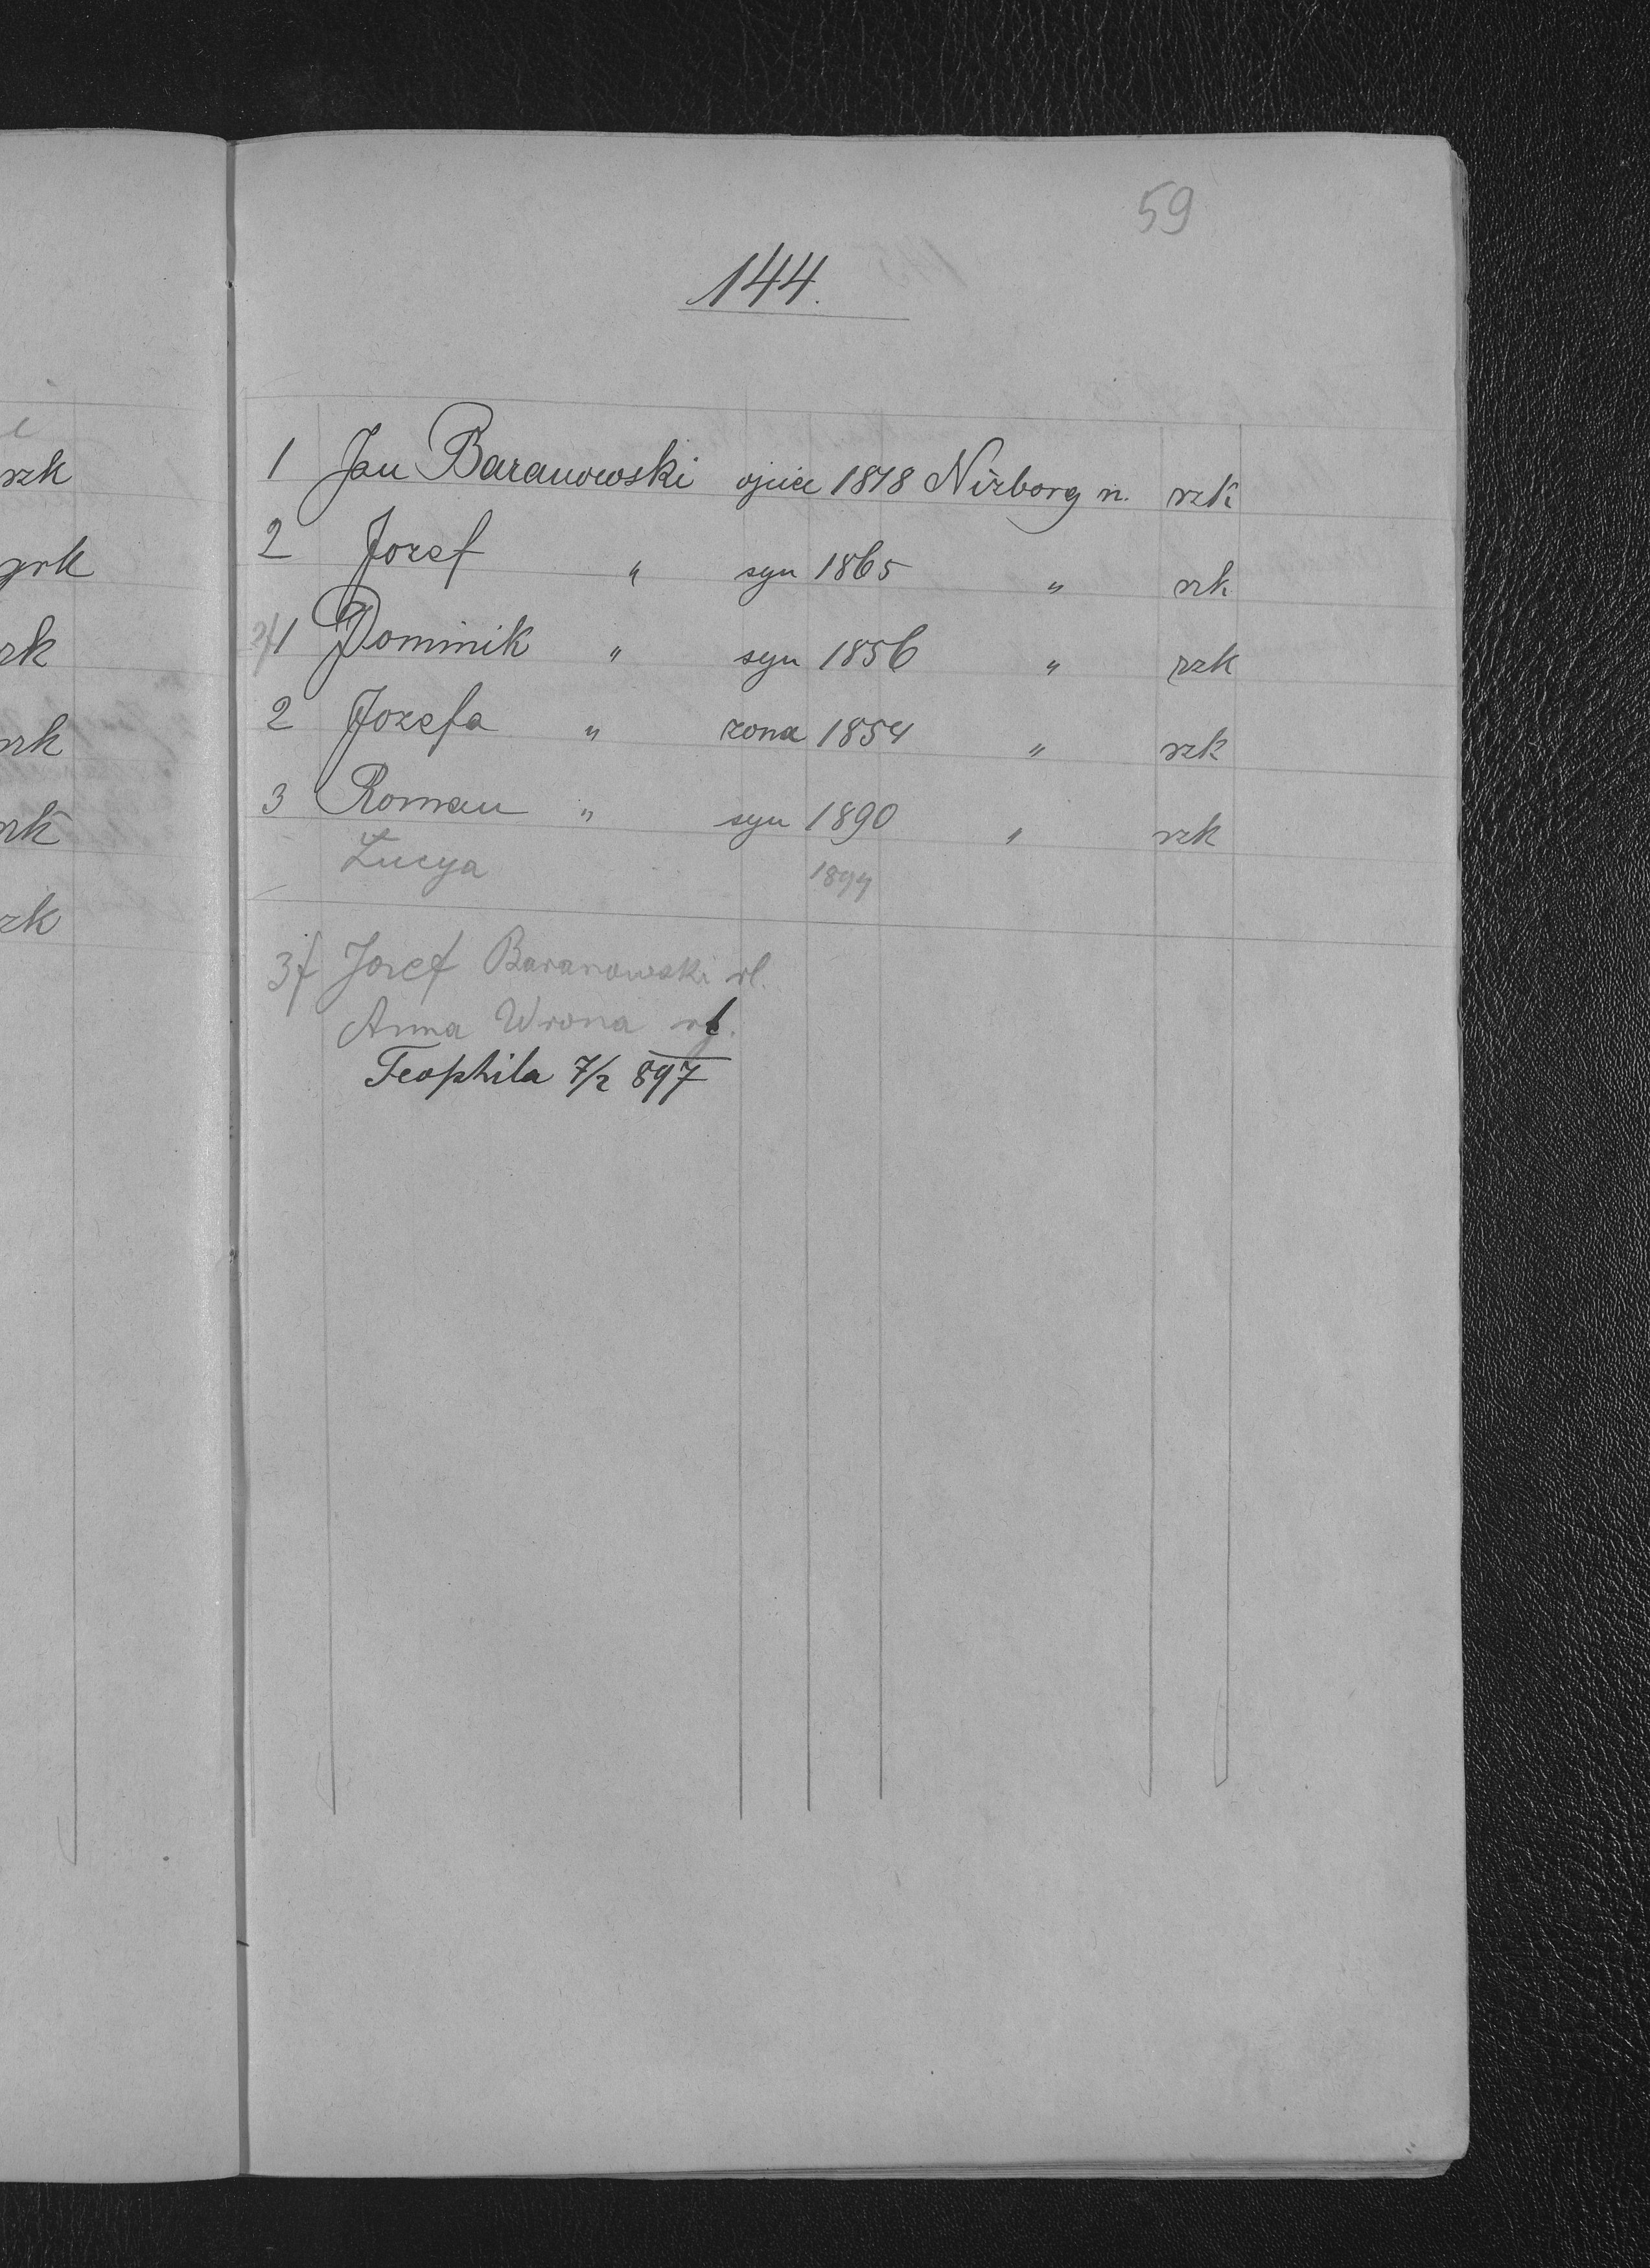 59
144.
1 Jan Baranowski ojciec 1818 Niżborg n. rzk
2 Jozef " syn 1865 " rzk
2f 1 Dominik " syn 1856 " rzk
2 Jozefa " zona 1854 " rzk
3 Roman " syn 1890 " rzk
Łucya 1894
3f Jozef Baranowski rl.
Anna Wrona
Teophila 7/2 897
rzk
grk
rk
rzk